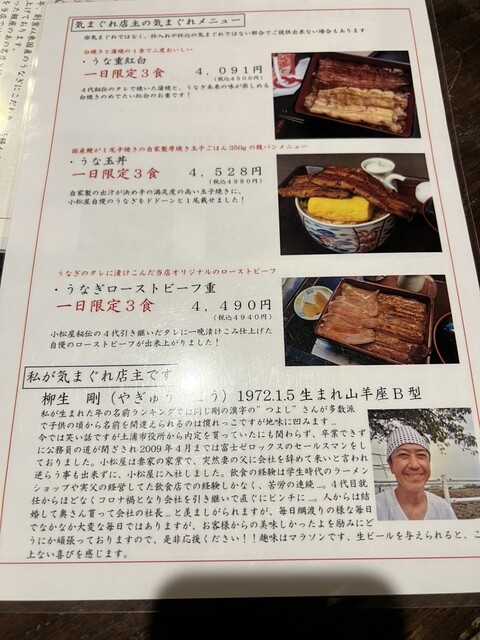 気まぐれ店主の気まぐれメニュー
※気まぐれではなく、仕入れや仕込の気まぐれではない都合でご提供出来ない場合もあります
白焼きと蒲焼の１重で二度おいしい
・うな重紅白
一日限定３食 ４，０９１円
（税込４５００円）
４代秘伝のタレで焼いた蒲焼と、うなぎ本来の味が楽しめる
白焼きのめでたい紅白のお重です！
国産鰻が１尾手焼きの自家製厚焼き玉子ごはん350gの腹パンメニュー
・うな玉丼
一日限定３食 ４，５２８円
（税込４９８０円）
自家製の出汁が決め手の満足度の高い玉子焼きに、
小松屋自慢のうなぎをドドーンと１尾載せました！
うなぎのタレに漬けこんだ当店オリジナルのローストビーフ
・うなぎローストビーフ重
一日限定３食 ４，４９０円
（税込４９４０円）
小松屋秘伝の４代引き継いだタレに一晩漬けこみ仕上げた
自慢のローストビーフが出来上がりました！
私が気まぐれ店主です
柳生 剛（やぎゅう こう）1972.1.5 生まれ山羊座Ｂ型
私が生まれた年の名前ランキングでは同じ剛の漢字の”つよし”さんが多数派
で子供の頃から名前を間違えられるのは慣れっこですが地味に凹みます…
今では笑い話ですが土浦市役所から内定を貰っていたにも関わらず、卒業できず
に公務員の道が閉ざされ 2009 年４月までは富士ゼロックスのセールスマンをし
ておりました。小松屋は妻家の家業で、突然妻の父に会社を辞めて来いと言われ
逆らう事も出来ずに、小松屋に入社しました。飲食の経験は学生時代のラーメン
ショップや実父の経営してた飲食店での経験しかなく、苦労の連続…。４代目就
任からほどなくコロナ禍となり会社を引き継いで直ぐにピンチに…。人からは結
婚して奥さん貰って会社の社長…と羨ましがられますが、毎日綱渡りの様な毎日
でなかなか大変な毎日ではありますが、お客様からの美味しかったよを励みにど
うにか頑張っておりますので、是非応援ください！！趣味はマラソンです、生ビールを与えられると、こ
上ない喜びを感じます。